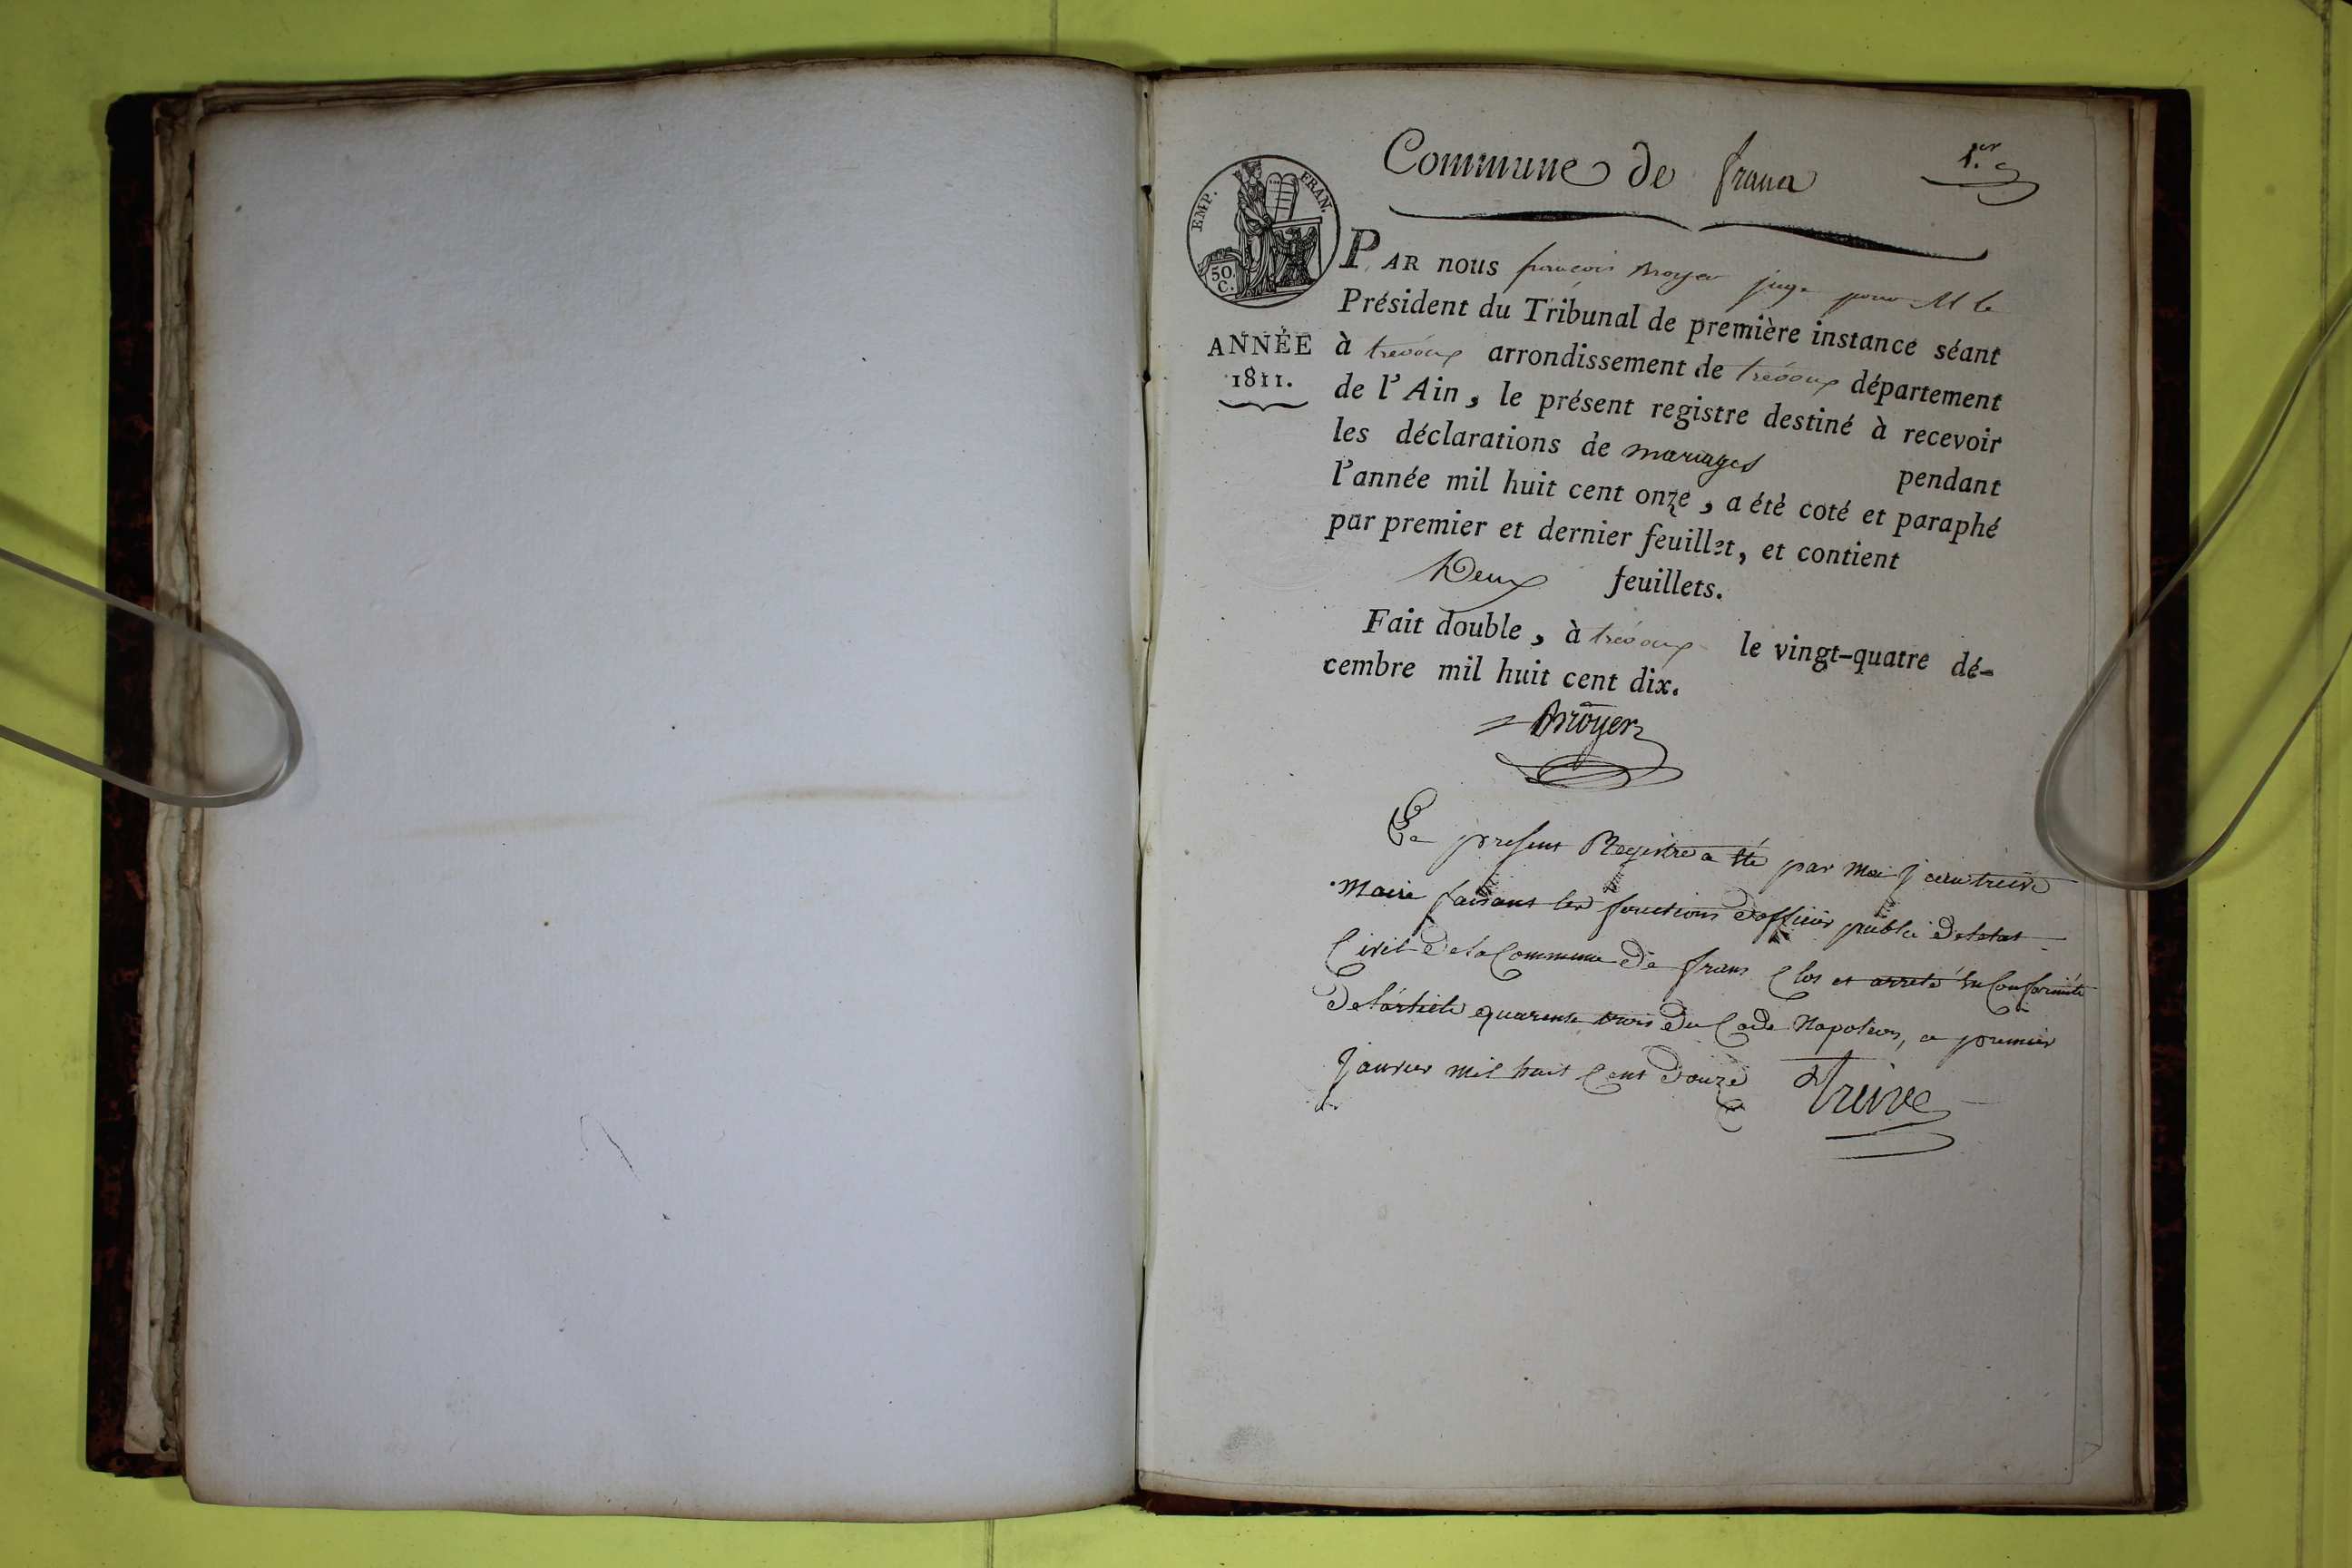 Commune de frans
1.er
EMP. FRAN.
50.
C.
PAR nous françois moyer juge pour M le
Président du Tribunal de première instance séant
ANNÉE
1811.
à trévoux arrondissement de trévoux département
de l'Ain, le présent registre destiné à recevoir
les déclarations de mariages pendant
l'année mil huit cent onze, a été coté et paraphé
par premier et dernier feuillet, et contient
Deux feuillets.
Fait double, à trévoux le vingt-quatre dé-
cembre mil huit cent dix.
Moyer
Le present Registre a été par moi jean treive
Maire faisant les fonctions d'officier public deletat
Civil de la Commune de frans Clos et arreté en Conformité
de l'article quarente trois du Code Napoleon, ce premier
Janvier mil huit Cent douze Treive